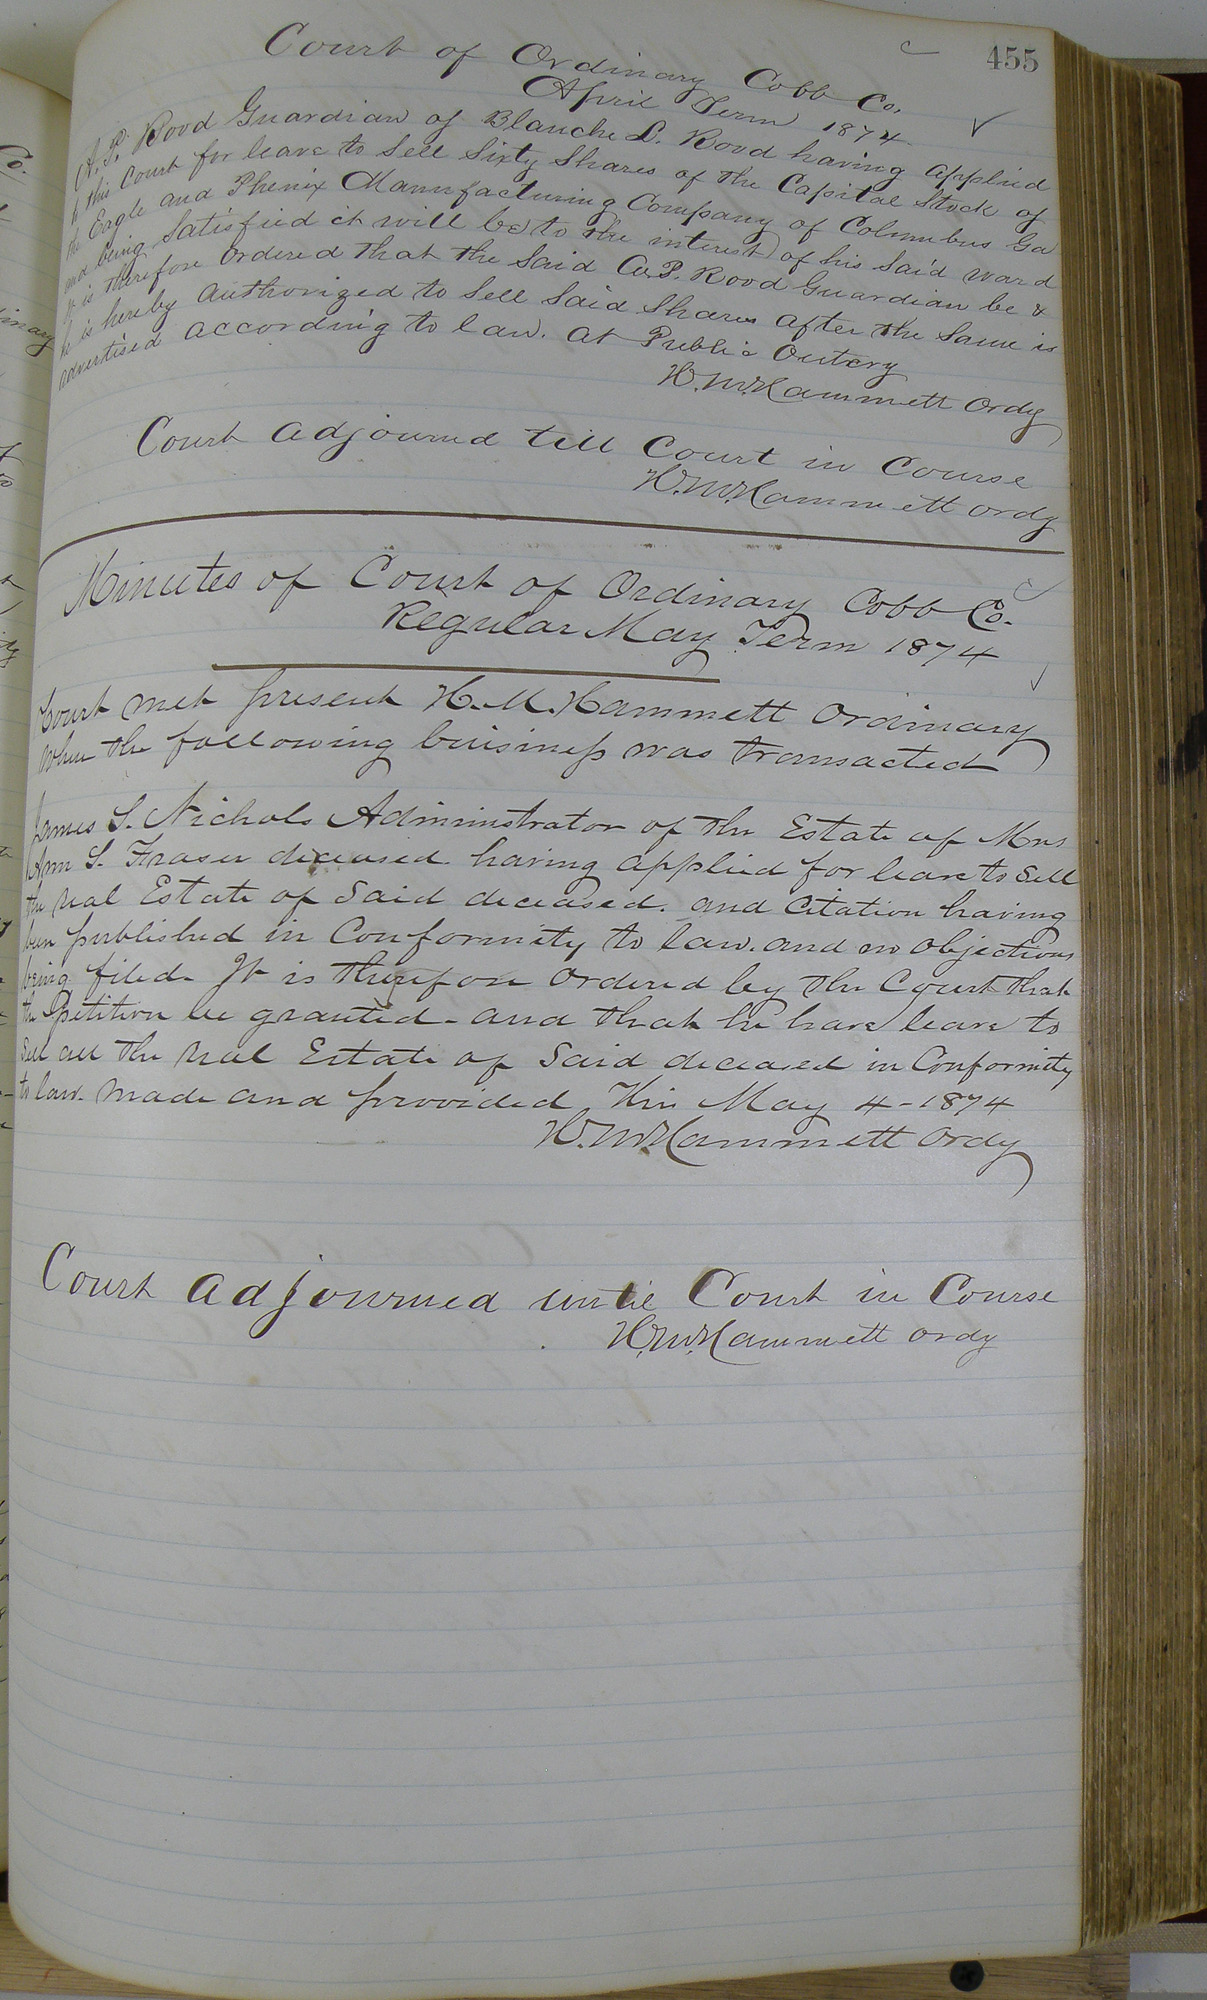 455
Court of Ordinary Cobb Co.
April Term 1874
A. P. Rood Guardian of Blanche L. Rood having applied
to this Court for leave to Sell Sixty Shares of the Capital Stock of
the Eagle and Phenix Manufacturing Company of Columbus Ga
and being Satisfied it will be to the interest of his Said ward
It is therefore Ordered that the Said A. P. Rood Guardian be &
he is hereby authorized to Sell Said Shares after the Same is
advertised according to law. at Public Outcry
H. M. Hammett Ordy
Court adjourned till Court in Course
H. M. Hammett ordy
Minutes of Court of Ordinary Cobb Co.
Regular May Term 1874
Court met present H. M. Hammett Ordinary
When the following business was transacted
James S. Nichols Administrator of the Estate of Mrs
Ann S. Fraser deceased having applied for leave to Sell
the real Estate of Said deceased. and Citation having
been published in Conformity to law. and no objections
being filed. It is therefore ordered by the Court that
the Petition be granted - and that he have leave to
Sell all the real Estate of Said deceased in Conformity
to law. made and provided This May 4 - 1874
H. M. Hammett Ordy
Court adjourned until Court in Course
H. M. Hammett ordy